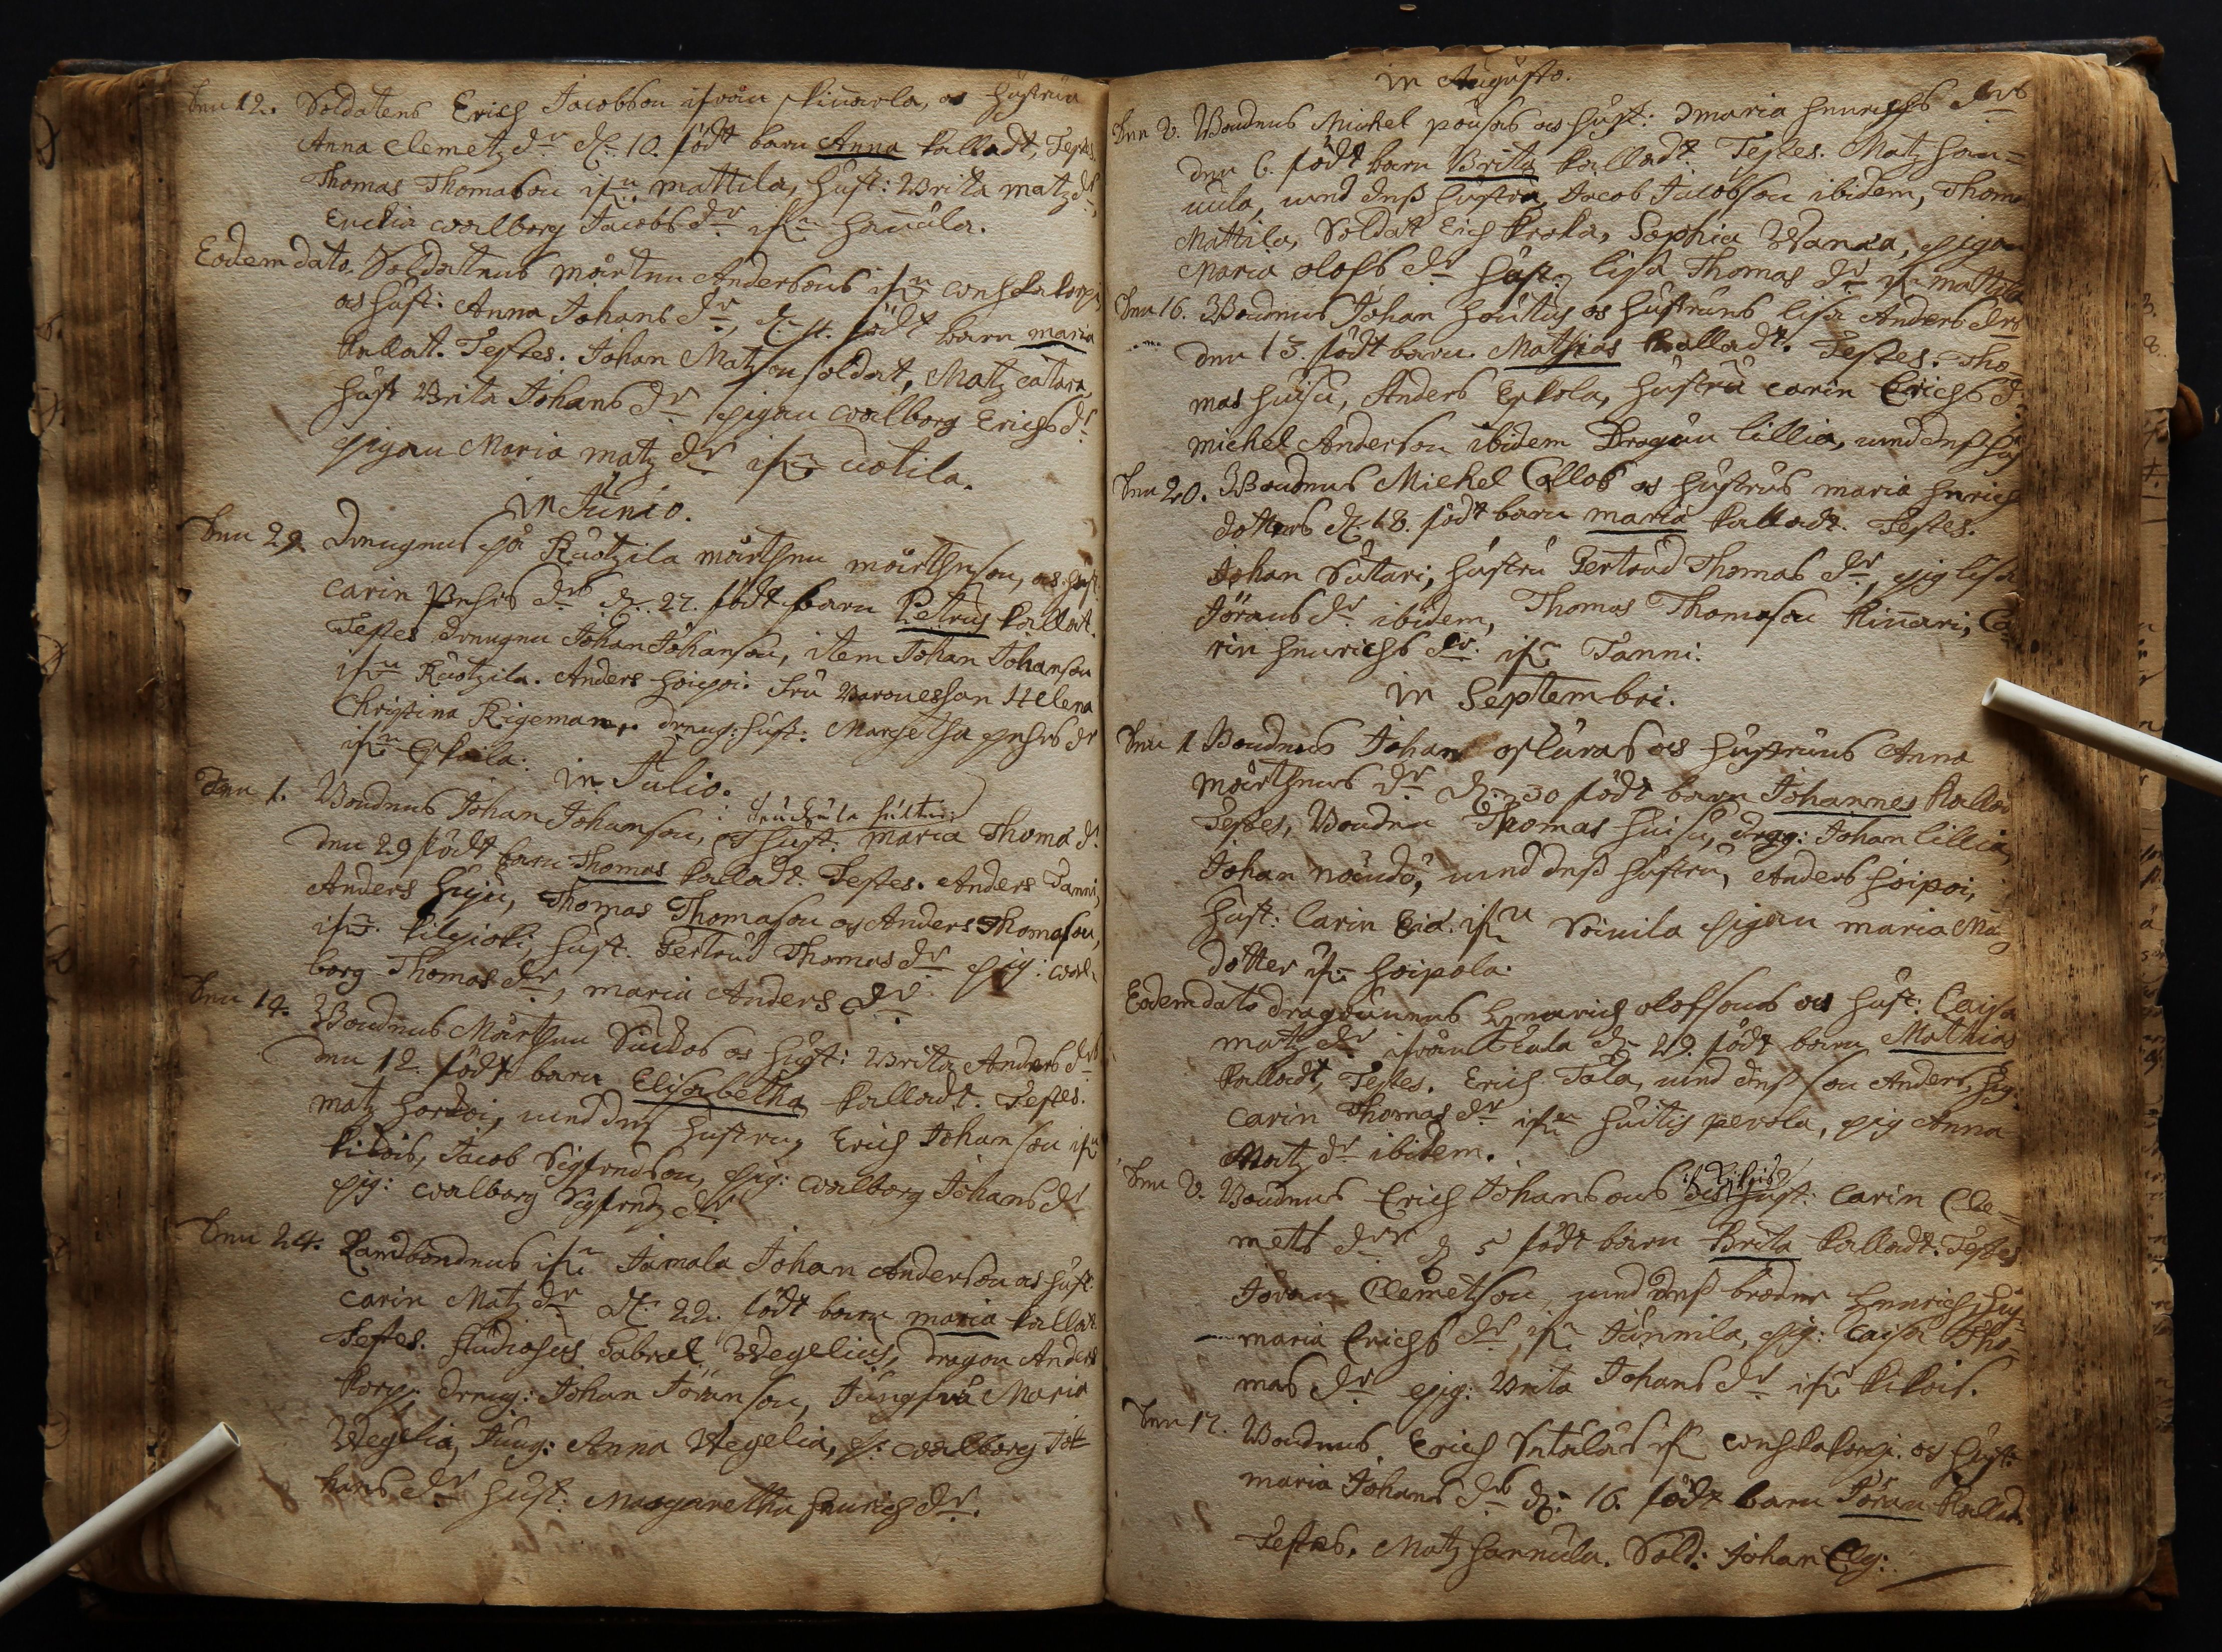 Den 12. Soldatens Erich Jacobsons ifrån Kinarla, os hustrus
Anna Clemetz dr d. 10. födt barn Anna kalladt, Testes.
Thomas Thomasson ifrn Mattila, hust: Brita Matz dr,
Enckia Walborg Jacobs dr ifrn Hannula.
Eodem dato. Soldatens Mårten Andersons ifrn
os hust: Anna Johans dr, d. 11. födt barn Maria
kallat. Testes. Johan Matzson soldat, Matz Cattara
hust Brita Johans dr pigan Walborg Erichs dr
pigan Maria Matz dr ifrn Uotila.
In Junio.
Den 29. Drengens på Ruotzila Mårthen Mårthenson, os hust
Carin Pehrs dr d. 27. födt barn Petrus kallat.
Testes drengen Johan Johanson, item Johan Johanson
ifrn Ruotzila. Anders Hoipoi. Fru Baronessan Helena
Christina Rigeman, dreng: hust: Margetha Pehrs dr
ifrn Eskoila.
in Julio.
Den 1. Bondens Johan Johanson, os hust: Maria Thoma dr
den 29 födt barn Thomas kalladt. Testes. Anders Tanni,
Anders Huju, Thomas Thomason os Anders Thomason,
ifrn Kilpioki, hust. Gertrud Thomas dr pig: Wal-
borg Thomas dr, Maria Anders dr.
Den 14. Bondens Mårthen os hust: Brita Anders dr
den 12. födt barn Elisabetha kalladt. Testes.
Matz Horkoi, med dess hustru, Erich Johanson ifrn
Kikois, Jacob Sigfredson, pig: Walborg Johans dr
pig: Walborg Sigfredz dr
Den 24. Landbondens ifrn Jamala Johan Anderson os hust
Carin Matz dr d. 22. födt barn Maria kallat
Testes. Studiosus Gabriel Wegelius, dragon Anders
Korp, dreng: Johan Jöranson, Jungfru Maria
Wegelia, Jung: Anna Wegelia, p: Walborg Jo-
hans dr hust: Margaretha Henrichs dr.
in Augusto.
Den Bondens Michel Pousas os hust: Maria Henrichs drs
den 6. födt barn Brita kalladt. Testes. Matz Han-
nula, med dess hustru, Jacob Jacobson ibidem, Thomas
Mattila, Soldat Erich Kroka, Sophia Wanka, pigan
Maria Olofs dr hust: Lisa Thomas dr ifrn Mattila
Den 16. Bondens Johan Houtus os hustruns Lisa Anders drs
den 13. födt barn Mathias kalladt. Testes. Tho-
mas Huisu, Anders Eskola, hustru Carin Erichs dr
Michel Anderson ibidem Dragon Lillia, med dess hu
Den 20. Bondens Michel Collos os hustrus Maria Henrichs
dotters d. 18. födt barn Maria kalladt. Testes.
Johan Sutari, hustru Gertrud Thomas dr, pig Lisa
Jörans dr ibidem, Thomas Thomason Kinnari, Ca-
rin Henrichs dr. ifrn Tanni.
in Septembri.
Den 1 Bondens Johan os hustruns Anna
Mårthens dr d. 30 födt barn Johannes kallad
Testes, Bonden Thomas Huisu, drag: Johan Lillia,
Johan med dess hustru, Anders Hoipoi,
hust: Carin ifrn Soinila pigan Maria Ma
dotter ifrn Hoipola.
Eodem dato dragounens Henrich Olofsons os hust: Caisa
Matz dr ifrån d. 29. födt barn Mathias
kalladt, Testes. Erich Tala, med dess son Anders, pig.
Carin Thomas dr ifrn Huitis Perola, pig Anna
Matz dr ibidem.
Den Bondens Erich Johansons os hust: Carin Cle-
mets drs d 5 födt barn Brita kalladt. Testes
Jöran Clemetson, med dess broder Henrich, hus-
Maria Erichs dr, ifrn Junnila, pig: Caisa Tho-
mas dr pig: Brita Johans dr ifrn Kikois.
Den 17. Bondens Erich ifrn os hust:
Maria Johans drs d. 16. födt barn Jöran kallad.
Testes, Matz Hannula. Sold: Johan Elg: